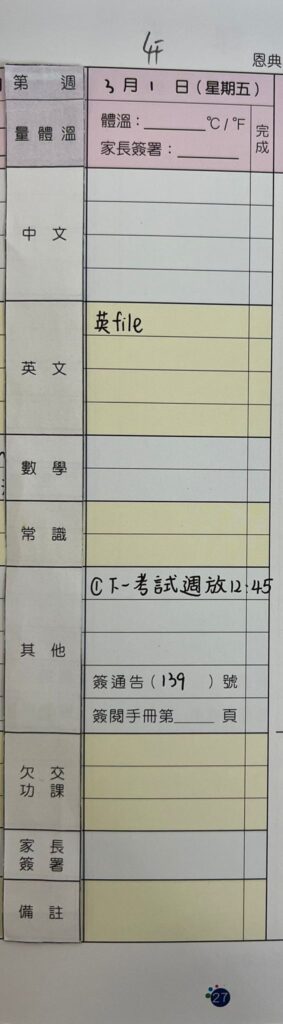 恩典
第 週
3 月 1 日 (星期五)
量體溫
體溫：______℃/℉
家長簽署：______
完成
中 文
英 文
英file
數 學
常 識
其 他
①下一考試週放12:45
簽通告(139 )號
簽閱手冊第____頁
欠 交
功 課
家 長
簽 署
備 註
27